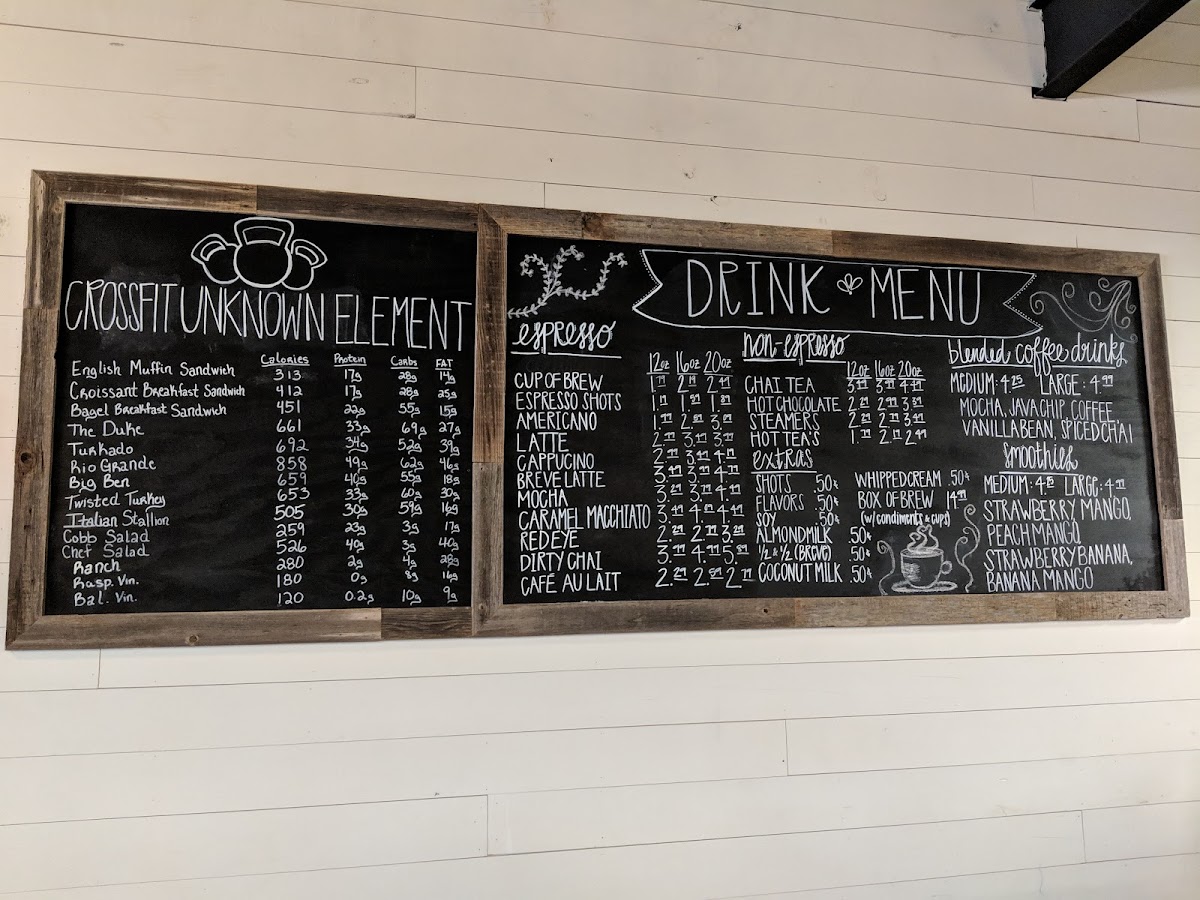 CROSSFIT UNKNOWN ELEMENT
Calories Protein Carbs FAT
English Muffin Sandwich 313 17g 28g 14g
Croissant Breakfast Sandwich 412 17g 28g 25g
Bagel Breakfast Sandwich 451 22g 55g 15g
The Duke 661 33g 69g 27g
Turkado 692 34g 52g 39g
Rio Grande 858 49g 62g 46g
Big Ben 659 40g 55g 18g
Twisted Turkey 653 33g 60g 30g
Italian Stallion 505 30g 59g 16g
Cobb Salad 259 23g 3g 17g
Chef Salad 526 40g 3g 40g
Ranch 280 2g 4g 28g
Rasp. Vin. 180 0g 8g 16g
Bal. Vin. 120 0.2g 10g 9g
DRINK MENU
espresso
12oz 16oz 20oz
CUP OF BREW
ESPRESSO SHOTS
AMERICANO
LATTE
CAPPUCINO
BREVE LATTE
MOCHA
CARAMEL MACCHIATO
RED EYE
DIRTY CHAI
CAFÉ AU LAIT
non-espresso
12oz 16oz 20oz
CHAI TEA
HOT CHOCOLATE
STEAMERS
HOT TEA'S
extras
SHOTS .50¢
FLAVORS .50¢
SOY .50¢
ALMONDMILK .50¢
½ & ½ (BREVE) .50¢
COCONUT MILK .50¢
WHIPPED CREAM .50¢
BOX OF BREW 14.99
(w/ condiments & cups)
blended coffee drinks
MEDIUM: 4.25 LARGE: 4.99
MOCHA, JAVA CHIP, COFFEE,
VANILLA BEAN, SPICED CHAI
smoothies
MEDIUM: 4.25 LARGE: 4.99
STRAWBERRY MANGO,
PEACH MANGO
STRAWBERRY BANANA,
BANANA MANGO